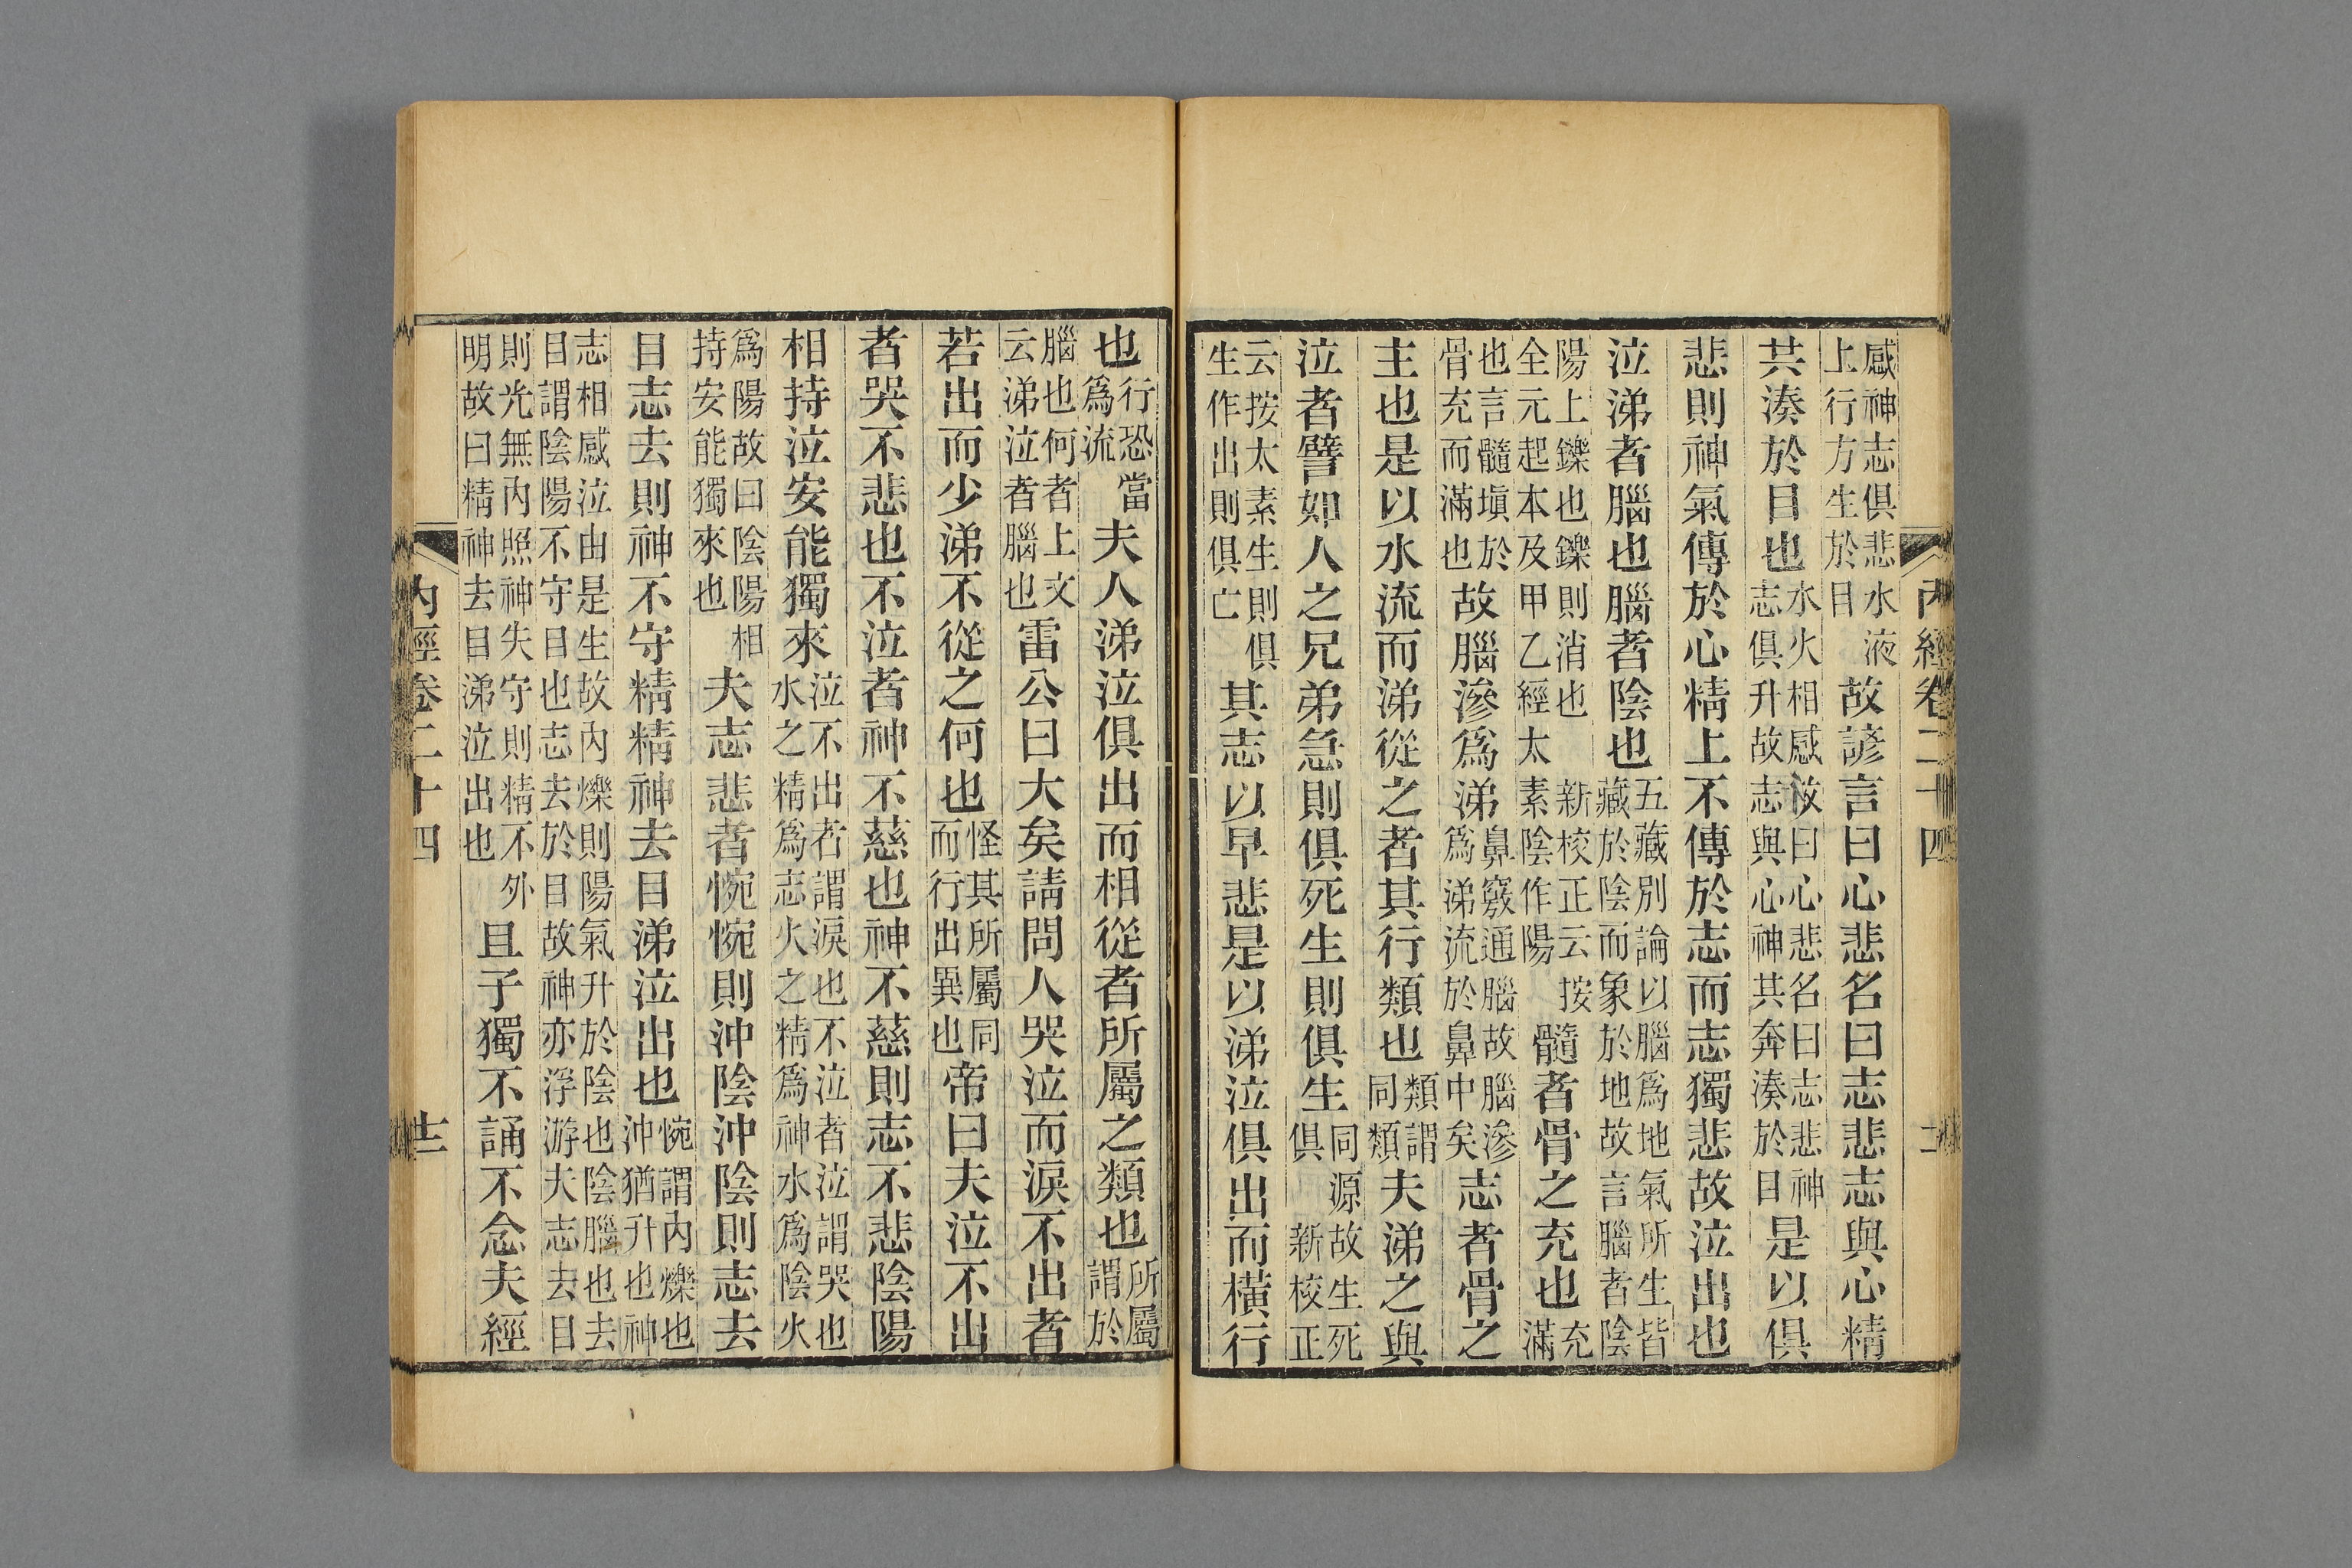 內經卷二十四
感神志俱悲水液
上行方生於目
故諺言曰心悲名曰志悲志與心精
共湊於目也
水火相感故曰心悲名曰志悲神
志俱升故志與心神其奔湊於目
是以俱
悲則神氣傳於心精上不傳於志而志獨悲故泣出也
泣涕者腦也腦者陰也
五藏別論以腦爲地氣所生皆
藏於陰而象於地故言腦者陰
陽上鑠也鑠則消也
新校正云按
全元起本及甲乙經太素陰作陽
髓者骨之充也
充
滿
也言髓塡於
骨充而滿也
故腦滲爲涕
鼻竅通腦故腦滲
爲涕流於鼻中矣
志者骨之
主也是以水流而涕從之者其行類也
類謂
同類
夫涕之與
泣者譬如人之兄弟急則俱死生則俱生
同源故生死
俱
新校正
云按太素生則俱
生作出則俱亡
其志以早悲是以涕泣俱出而橫行
也
行恐當
爲流
夫人涕泣俱出而相從者所屬之類也
所屬
謂於
腦也何者上文
云涕泣者腦也
雷公曰大矣請問人哭泣而淚不出者
若出而少涕不從之何也
怪其所屬同
而行出異也
帝曰夫泣不出
者哭不悲也不泣者神不慈也神不慈則志不悲陰陽
相持泣安能獨來
泣不出者謂淚也不泣者泣謂哭也
水之精爲志火之精爲神水爲陰火
爲陽故曰陰陽相
持安能獨來也
夫志悲者惋惋則沖陰沖陰則志去
目志去則神不守精精神去目涕泣出也
惋謂內爍也
沖猶升也神
志相感泣由是生故內爍則陽氣升於陰也陰腦也去
目謂陰陽不守目也志去於目故神亦浮游夫志去目
則光無內照神失守則精不外
明故曰精神去目涕泣出也
且子獨不誦不念夫經
內經卷二十四